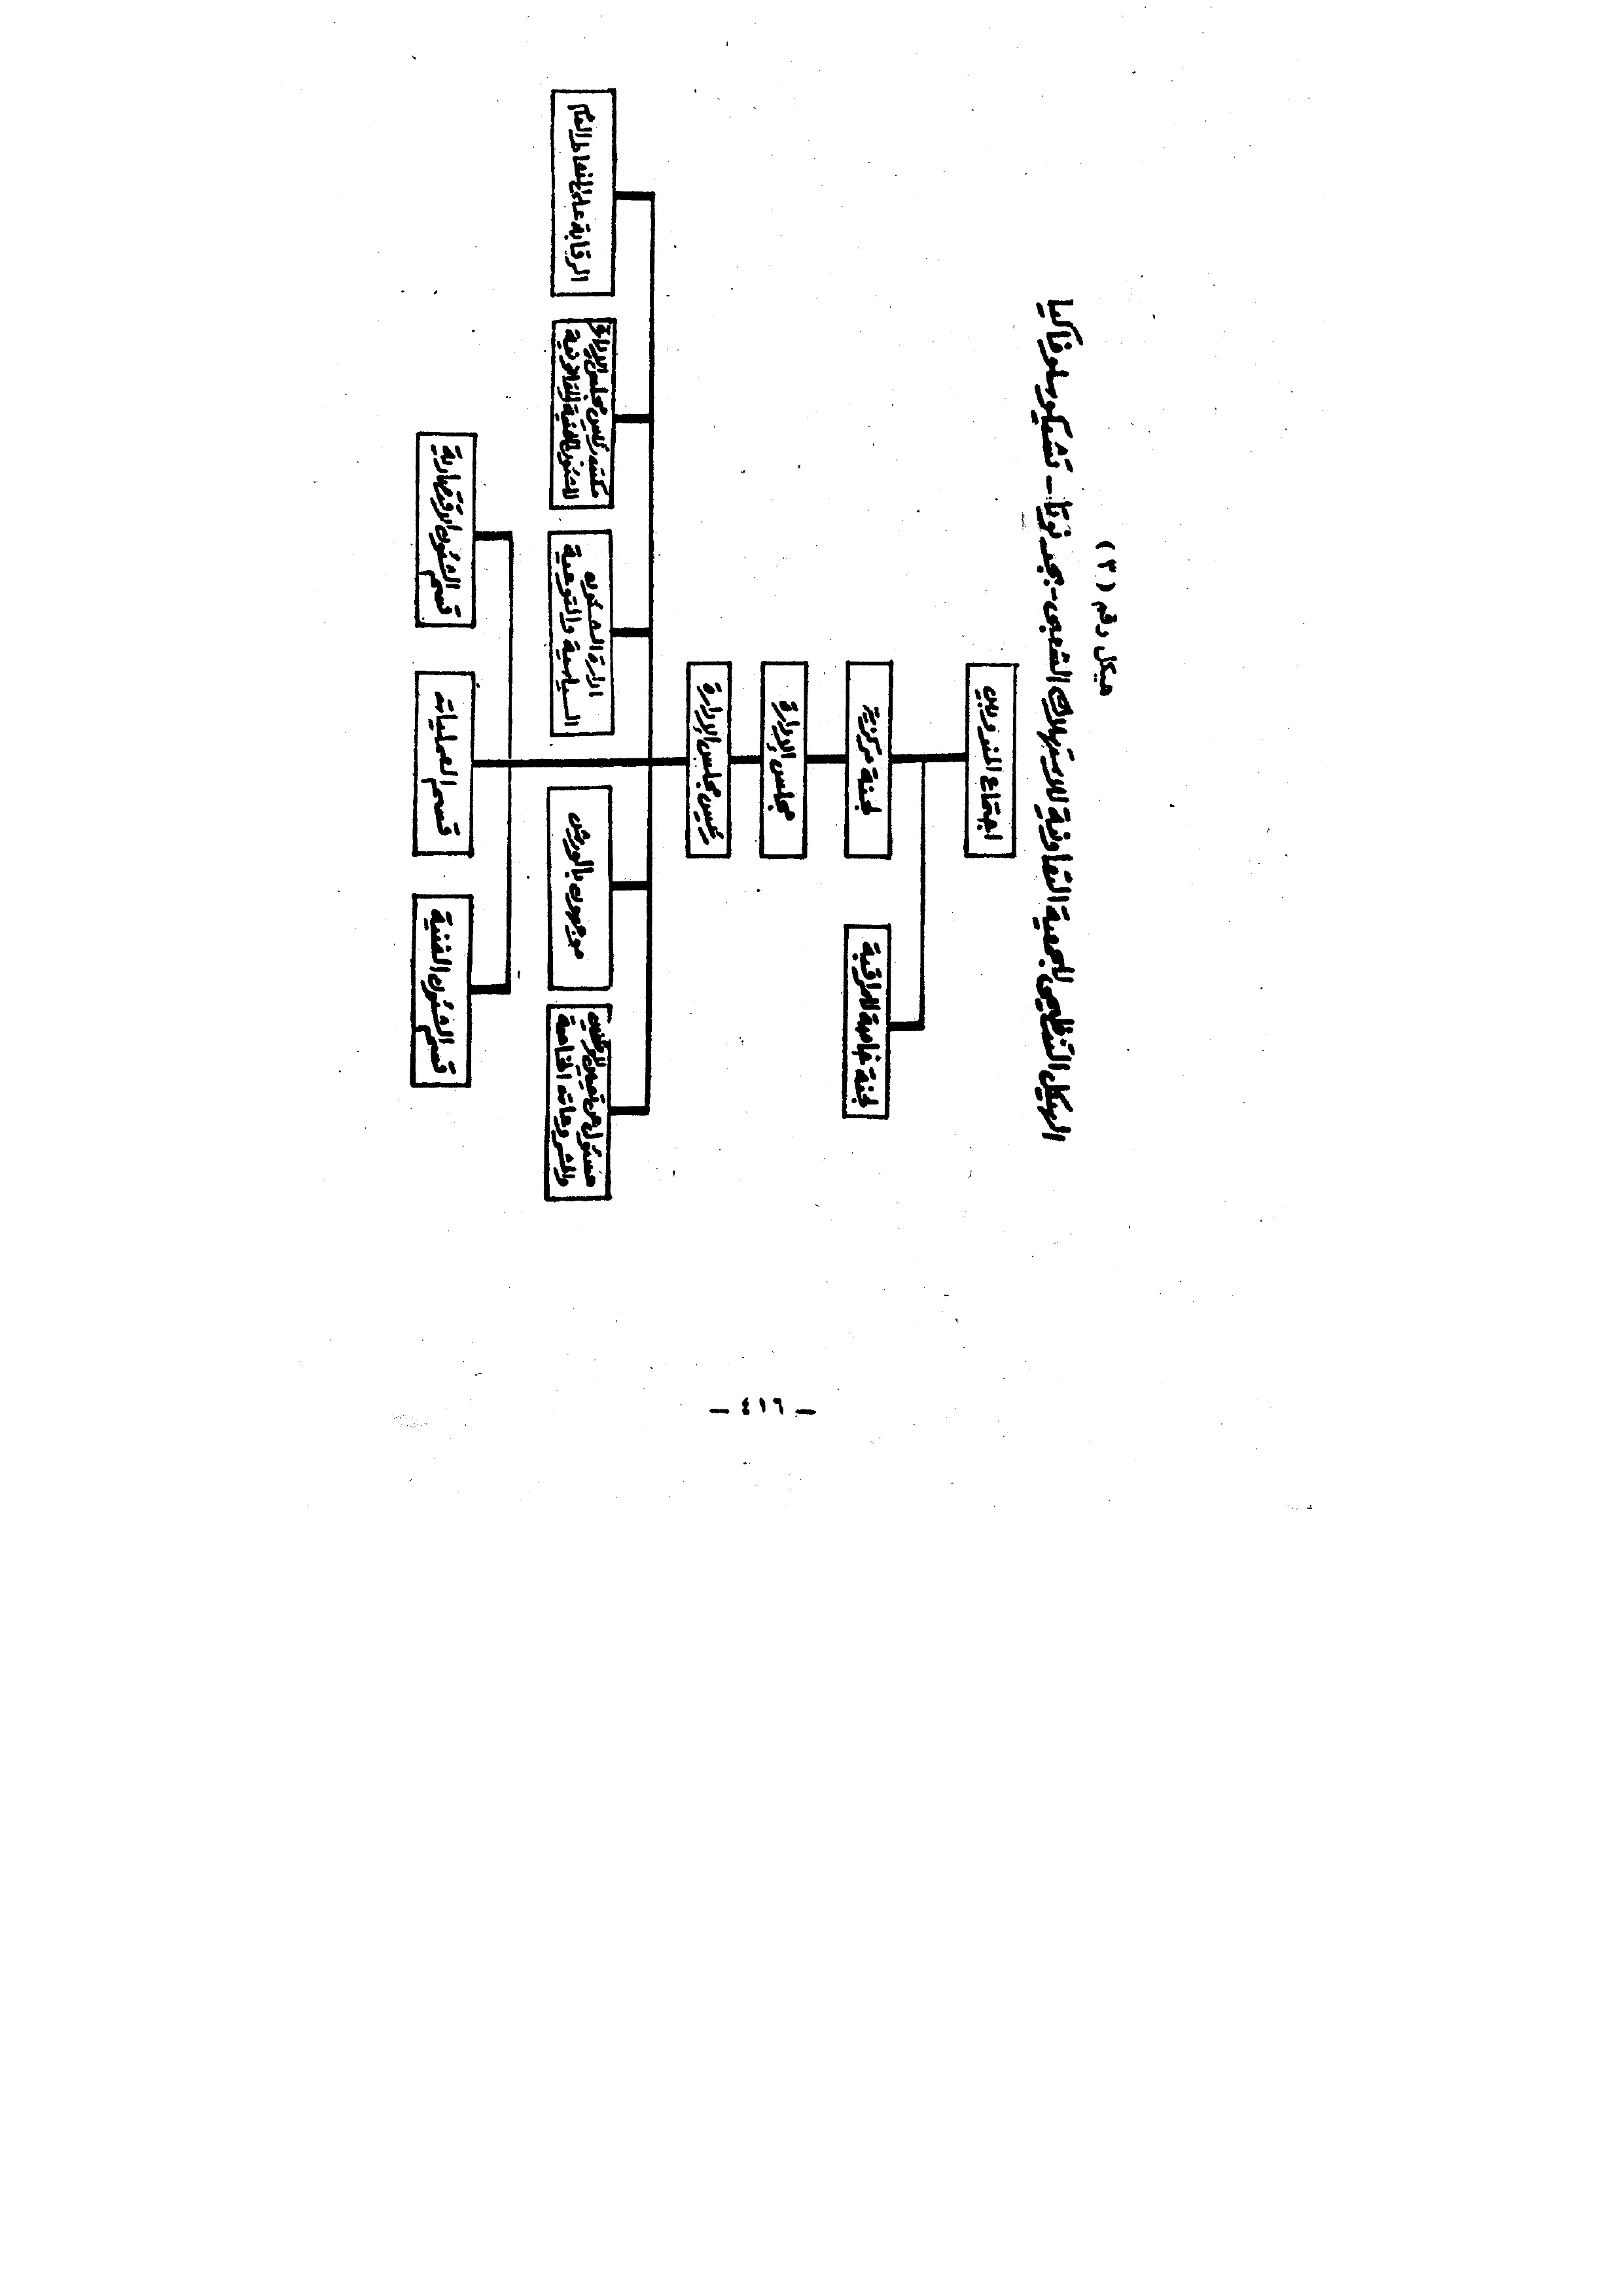 هيكل رقم (٣)
الهيكل التنظيمى للجمعية التعاونية للاستهلاك الشعبى - بجدنوتا - تشيكوسلوفاكيا
اجتماع المندوبين
لجنة مركزية
لجنة خاصة للمراقبة
مجلس الإدارة
رئيس مجلس الإدارة
مسئول عن تعيين
والمشروعات الخاصة
موجهون بالورش
ادارة الشئون
السياسية والتوعية
مكتب رئيس مجلس الادارة
للشئون الفنية والقانونية
الرقابة على النشاط العام
قسم الشئون الفنية
قسم العمليات
قسم الشئون الاقتصادية
- ٤١٦ -